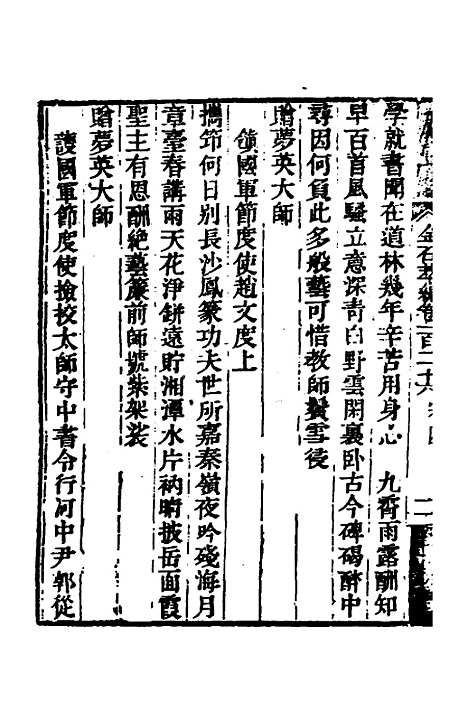 金石萃編卷一百二十六
學就書聞在道林幾年辛苦用身心　九霄雨露酬知
早百首風騷立意深青白野雲閑裏臥古今碑碣醉中
尋因何負此多般藝可惜教師鬢雪侵
贈夢英大師
鎮國軍節度使趙文度上
攜笻何日別長沙鳳篆功夫世所嘉秦嶺夜吟殘海月
章臺春講雨天花淨缾遠貯湘潭水片衲晴披岳面霞
聖主有恩酬絕藝簾前師號紫架裟
贈夢英大師
護國軍節度使檢校太師守中書令行河中尹郭從